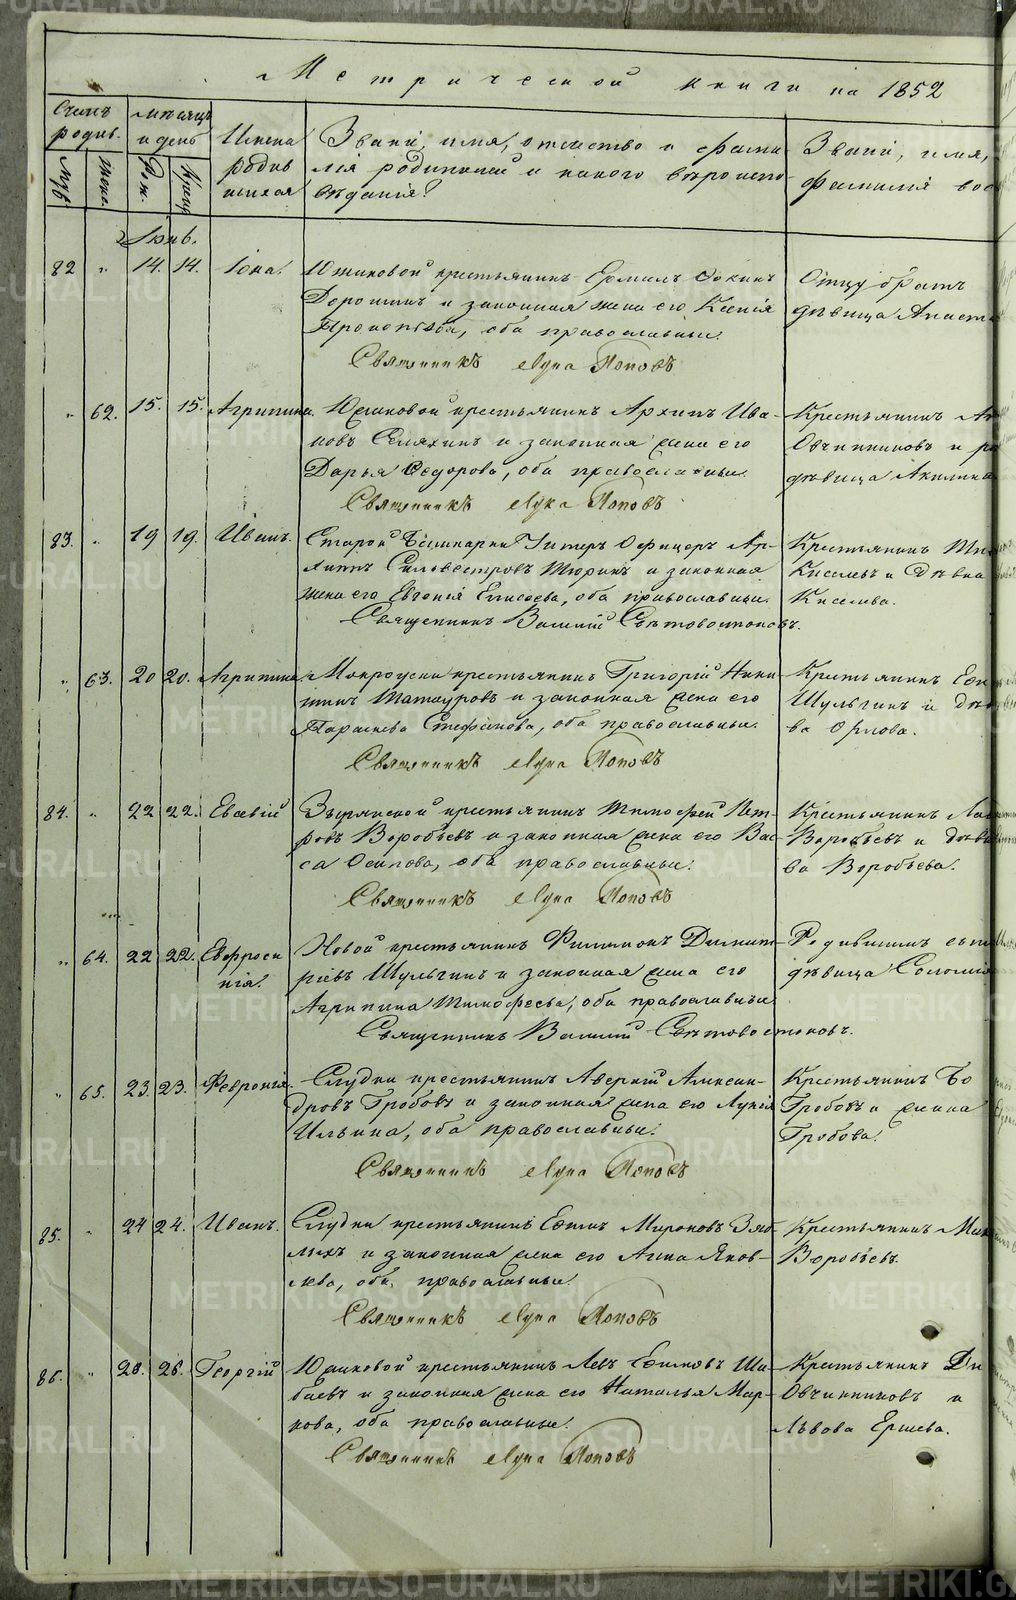 Метрической книги на 1852
Счетъ родив.
Муж.
Женс.
Мѣсяцъ и день
Рож.
Крещ.
Имена родившихся
Званіе, имя, отчество и фамилія родителей и какого вѣроисповѣданія?
Званіе, имя,
фамилія вос
Іюнь.
82 „ 14. 14. Іона.
Юшковой крестьянинъ Ермилъ Фокинъ
Дорошинъ и законная жена его Ксенія
Прокопьева, оба православные.
Священникъ Лука Поповъ
Отцу братъ
дѣвица Анаста
„ 62. 15. 15. Агрипина.
Юшковой крестьянинъ Архипъ Ива-
новъ и законная жена его
Дарья Ѳедорова, оба православные.
Священникъ Лука Поповъ
Крестьянинъ
Овчинниковъ и
дѣвица Акилина
83. „ 19 19. Иванъ.
Старой Унтеръ Офицеръ Ар-
хипъ Сильвестровъ Тюринъ и законная
жена его Евгенія Елисеева, оба православные.
Священникъ Василій Свѣтовостоковъ.
Крестьянинъ
Киселевъ и Дѣвка
Киселева.
„ 63. 20 20. Агрипина
Мокроуски крестьянинъ Григорій Ники-
тинъ Татауровъ и законная жена его
Парасковья Стефанова, оба православные.
Священникъ Лука Поповъ
Крестьянинъ Ефи
Шульгинъ и дѣ
ва Орлова.
84. „ 22 22. Евсевій
Зырянской крестьянинъ Тимофей Пет-
ровъ Воробьевъ и законная жена его Вас-
са Осипова, оба православные.
Священникъ Лука Поповъ
Крестьянинъ
Воробьевъ и дѣви
ва Воробьева.
„ 64. 22 22. Евфроси
нія.
Новой крестьянинъ Филимонъ Димит-
ріевъ Шульгинъ и законная жена его
Агрипина Тимофеева, оба православные.
Священникъ Василій Свѣтовостоковъ.
Родившимъ
дѣвица Соломія
„ 65. 23. 23. Февронія.
Слудки крестьянинъ Аверкій Алексан-
дровъ Гробовъ и законная жена его Лукія
Ильина, оба православные.
Священникъ Лука Поповъ
Крестьянинъ
Гробовъ и жена
Гробова.
85. „ 24 24. Иванъ.
Слудки крестьянинъ Ефимъ Мироновъ Зяб-
лыхъ и законная жена его Анна Яков-
лева, оба православные.
Священникъ Лука Поповъ
Крестьянинъ
Воробьевъ.
86. „ 26. 26. Георгій
Юшковой крестьянинъ Левъ Ефимовъ Ши-
баевъ и законная жена его Наталья Мар-
кова, оба православные.
Священникъ Лука Поповъ
Крестьянинъ
Овчинниковъ и
Львова Ершева.
METRIKI.GASO-URAL.RU